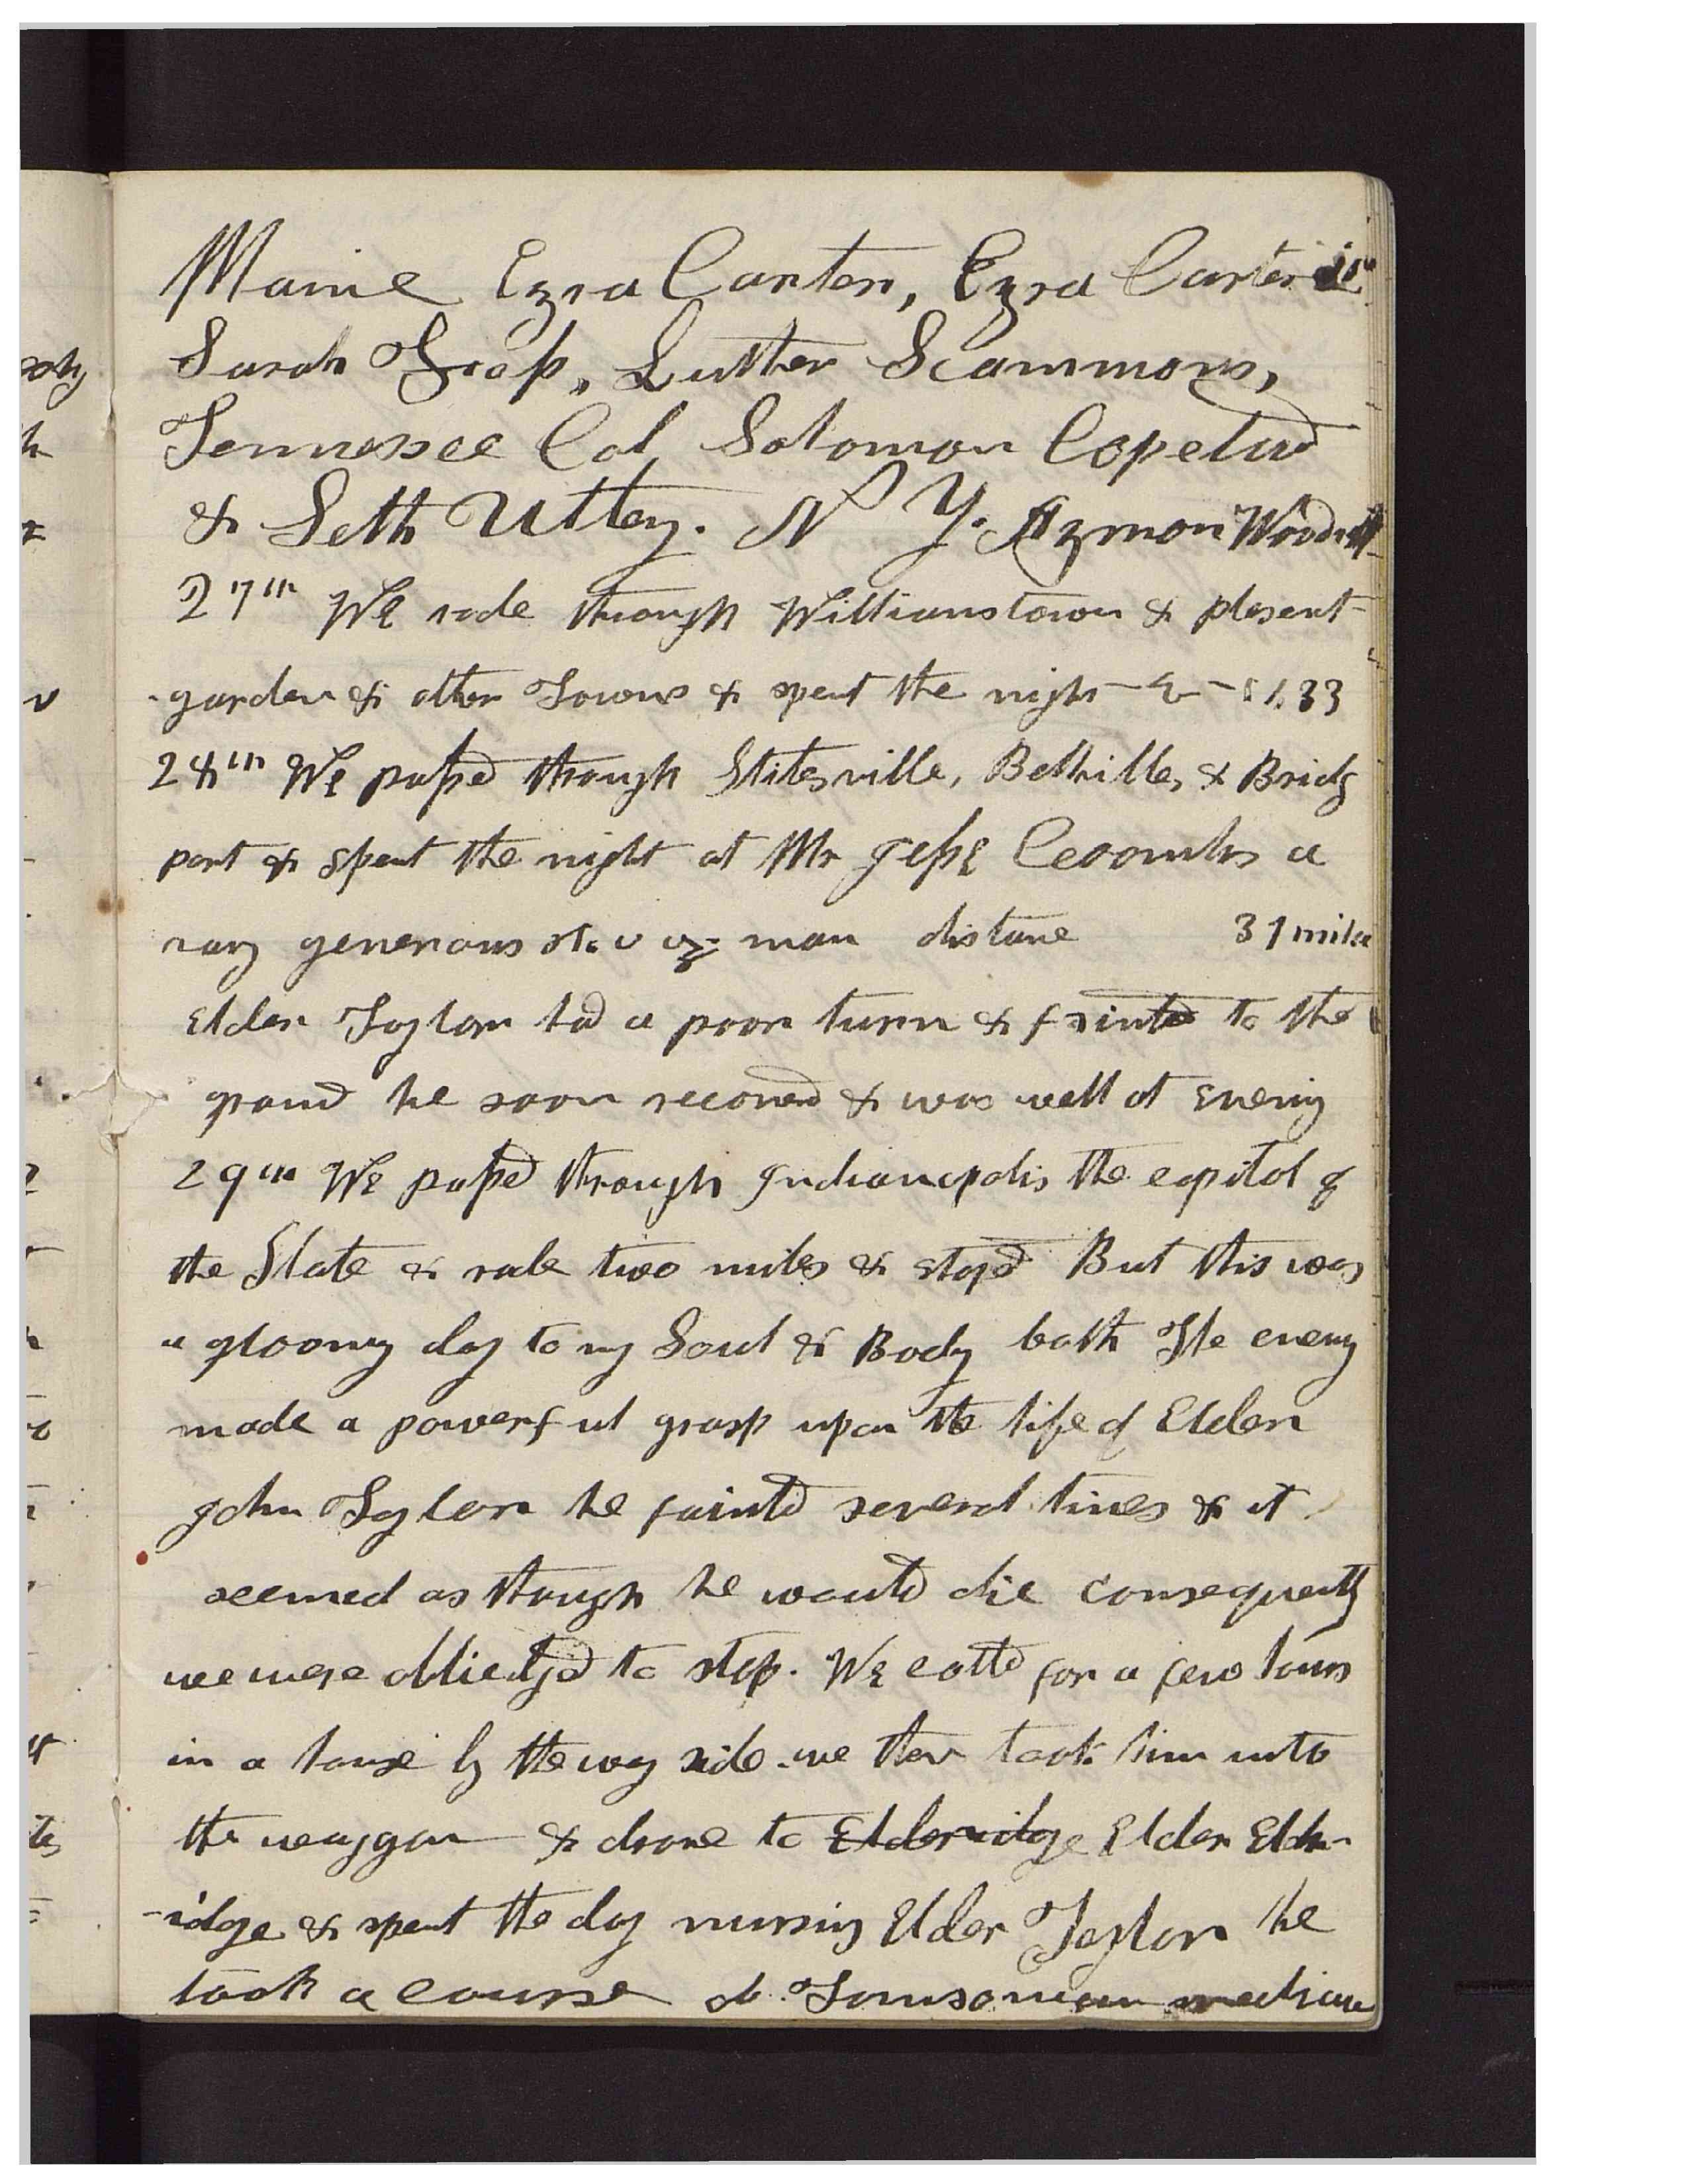 Maine Ezra Carter, Ezra Carter jr
Sarah Foss, Luther Scammons,
Tennessee Col Solomon Copeland
& Seth Utley. N Y. Azmon Woodruff
27th We rode through Williamstown & plesent
garden & other Towns & spent the night 33
28th We passed through Stilesville, Bellville, & Bridg
port & spent the night at Mr Jesse a
vary generous man distane 31 mile
Elder Taylor had a poor turn & fainted to the
ground he soon recoverd & was well at evenig
29th We passed through Indianopolis the capitol of
the State & rode two miles & stopd But this was
a gloomy day to my Soul & Body both The enemy
made a powerful grasp upon the life of Elder
John Taylor he fainted several times & it
seemed as though he would die consequently
we were oblieged to stop. We called for a few hours
in a house by the way side. we then took him into
the waggon & drove to Elderridge Elder Elder-
-idge & spent the day nursing Elder Taylor he
took a course of Tomsonian medicine